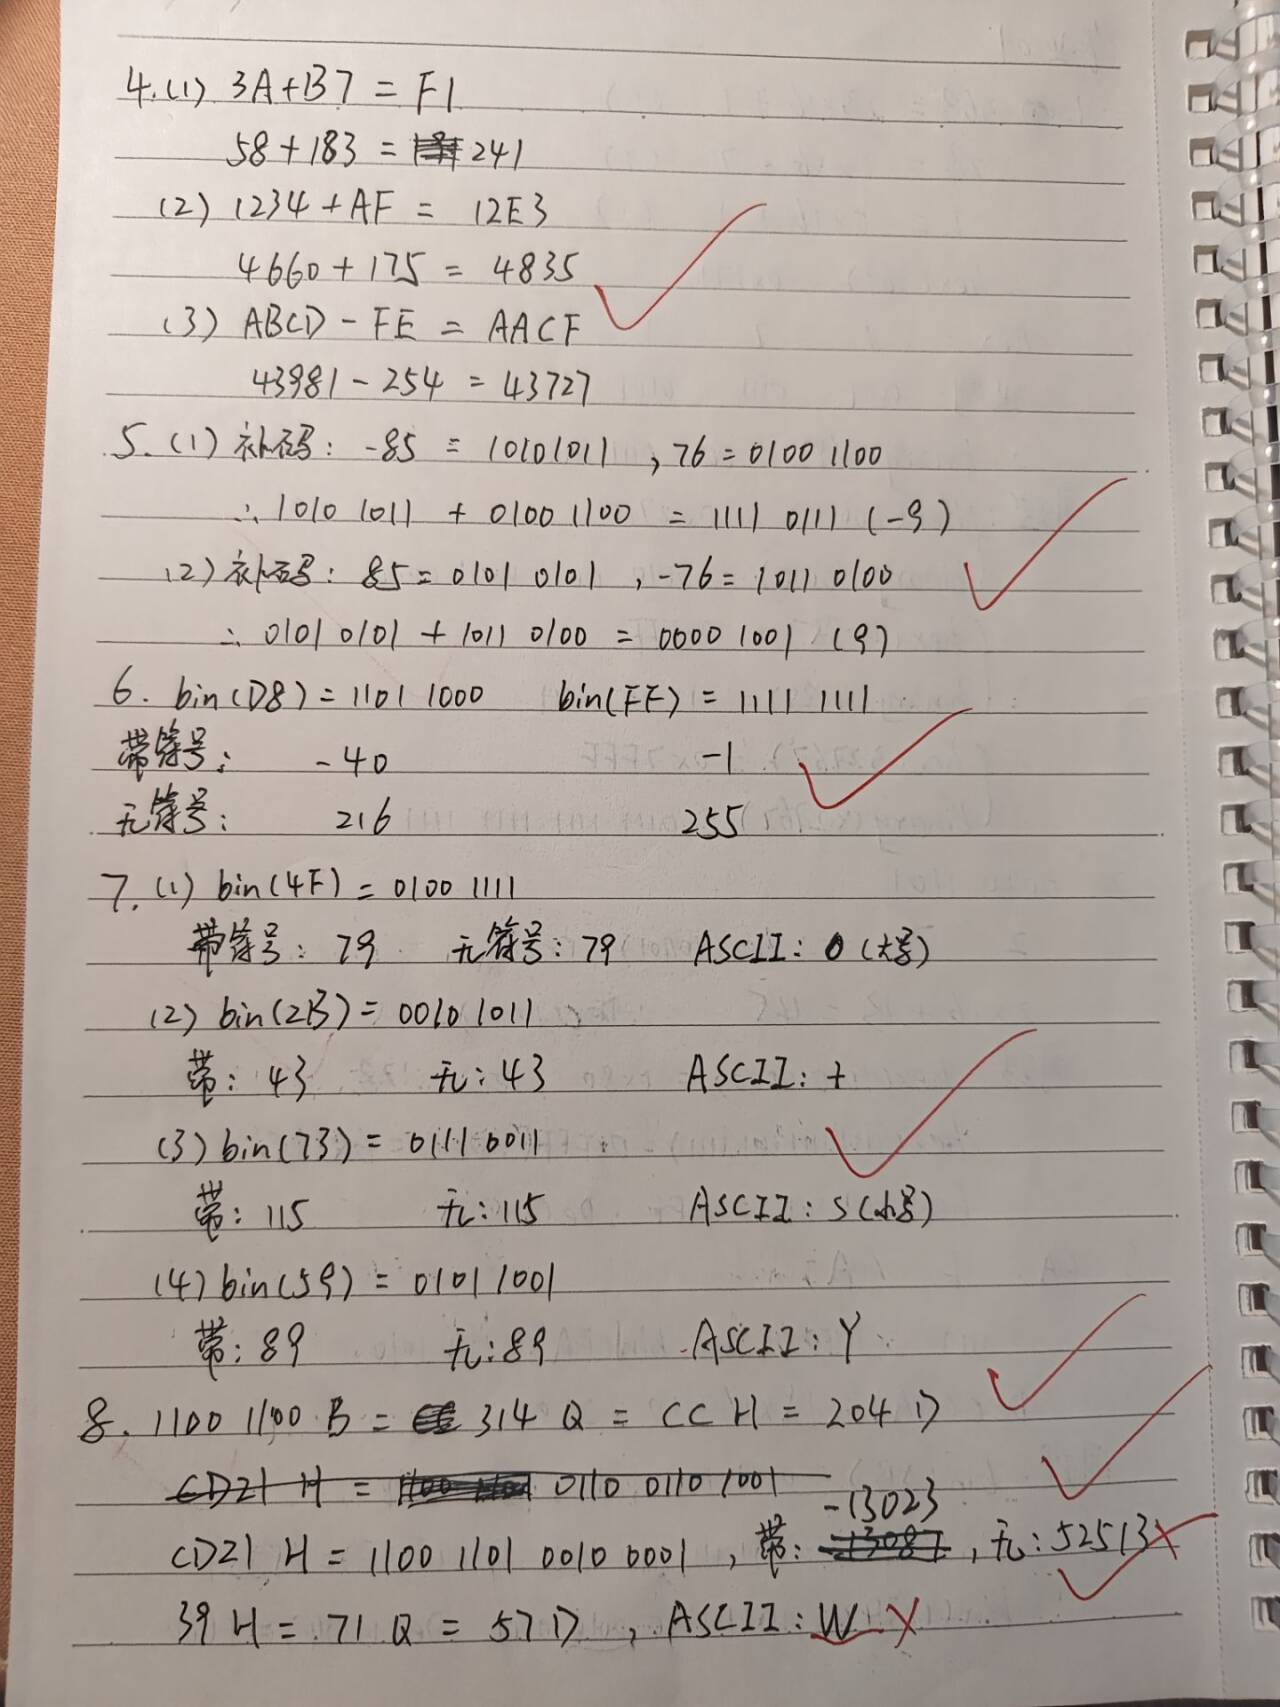 4.(1) 3A+B7 = F1
58+183 = 241
(2) 1234 +AF = 12E3
4660+175 = 4835
(3) ABCD - FE = AACF
43981-254 = 43727
5.(1) 补码: -85 = 10101011 , 76 = 0100 1100
∴ 1010 1011 + 0100 1100 = 1111 0111 (-9)
(2) 补码: 85 = 0101 0101 , -76 = 1011 0100
∴ 0101 0101 + 1011 0100 = 0000 1001 (9)
6. bin(D8) = 1101 1000 bin(FF) = 1111 1111
带符号: -40 -1
无符号: 216 255
7.(1) bin(4F) = 0100 1111
带符号: 79 无符号: 79 ASCII: O (大写)
(2) bin(2B) = 0010 1011
带: 43 无: 43 ASCII: +
(3) bin(73) = 0111 0011
带: 115 无: 115 ASCII: s(小写)
(4) bin(59) = 0101 1001
带: 89 无: 89 ASCII: Y
8. 1100 1100 B = 314 Q = CC H = 204 D
CD21 H = 0110 0110 1001
-13023
CD21 H = 1100 1101 0010 0001 , 带: , 无: 52513
39 H = 71 Q = 57 D , ASCII: W